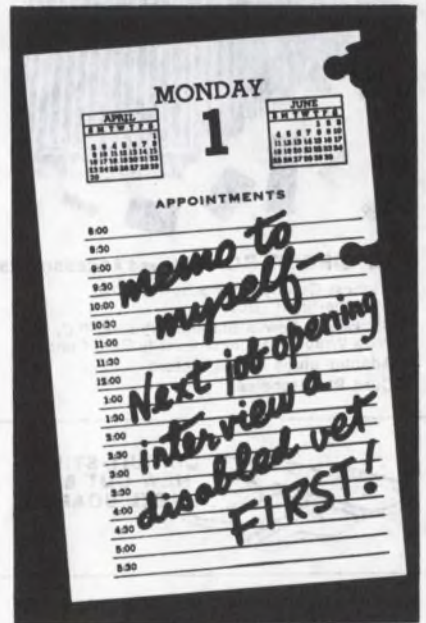 MONDAY
1
APRIL
S M T W T F S
JUNE
S M T W T F S
APPOINTMENTS
8:00
8:30
9:00
9:30
10:00
10:30
11:00
11:30
12:00
1:00
1:30
2:00
2:30
3:00
3:30
4:00
4:30
5:00
5:30
memo to
myself—
Next job opening
interview a
disabled vet
FIRST!